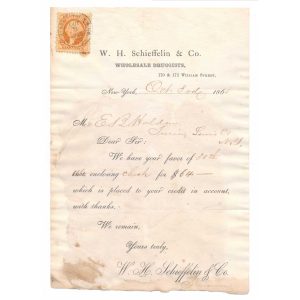 W. H. Schieffelin & Co.
WHOLESALE DRUGGISTS,
170 & 172 William Street,
New-York, Oct 186
Mr E. P.
Dear Sir:
We have your favor of 30th
enclosing check for $64—
which is placed to your credit in account,
with thanks.
We remain,
Yours truly,
W. H. Schieffelin & Co.